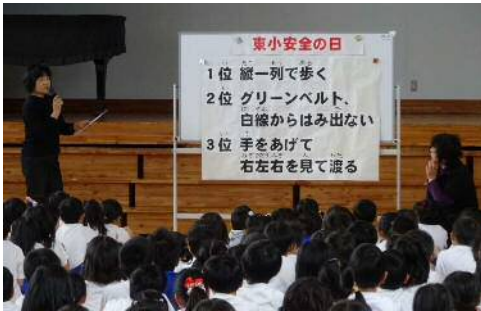 東小安全の日
1位 縦一列で歩く
2位 グリーンベルト、
白線からはみ出ない
3位 手をあげて
右左右を見て渡る